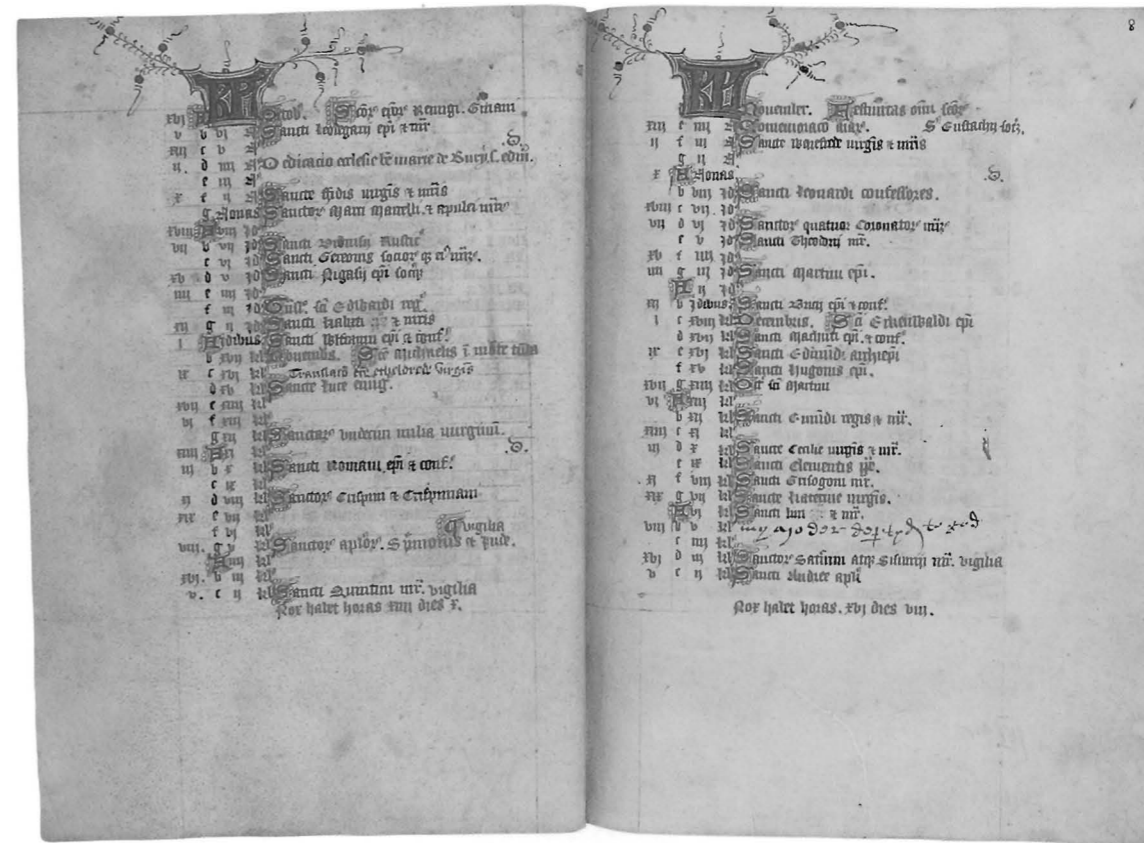 KL
xvj A Octob. Scõr epõr Remigi. Germani
v b vj Sancti Leodegarij epi & mr
xiij c v
ij. d iiij Dedicacio ecclesie be marie de Bury s. edm.
e iij
x f ij Sancte fidis uirgis & mris
g Nonas Sanctor Marci Marcelli. & apulei
xviij A viij Id
vij b vij Id Sancti Dionisij Rustic
c vj Id Sancti Gereonis socior
xv d v Id Sancti Nigasij epi socior
iiij e iiij Id
f iij Id Scti Edwardi reg
xij g ij Id Sancti kalixti & mris
i A Idibus. Sancti Wlfranni epi & conf.
b xvij kl Nouembris. Sci Michaelis i monte tuba
ix c xvj kl Translaco sce etheldrede virgis
d xv kl Sancte luce euug.
xvij e xiiij kl
vj f xiij kl
g xij kl Sanctarr vndecim milia uirginum.
xiiij A xj kl
iij b x kl Sancti Romani epi & conf.
c ix kl
xj d viij kl Sanctor Crispini & Crispiniani
xix e vij kl
f vj kl Vigilia
viij. g v kl Sanctor aplor. Symonis & Jude.
A iiij kl
xvj. b iij kl
v. c ij kl Sancti Quintini mr. vigilia
Nox habet horas xiiij dies x.
8
KL
d Nouember. Festiuitas omi scor
xiij e iiij Comemoraco aiar. S' Eustachij soc.
ij f iij Sancte Wenefrede uirgis & mris
g ij
x A Nonas
b viij Id Sancti leonardi confessores.
xviij c vij. Id
vij d vj Id Sanctor quatuor Coronator
e v Id Sancti Theodori mr.
xv f iiij Id
iiij g iij Id Sancti Martini epi.
A ij Id
xij b Idibus. Sancti Bricij epi & conf.
i c xviij kl Decembris. Sci Erkenwaldi epi
d xvij kl Sancti Machuti epi. & conf.
ix e xvj kl Sancti Edmundi. archiepi
f xv kl Sancti hugonis epi.
xvij g xiiij kl Oct sci Martini
vj A xiij kl
b xij kl Sancti Emundi regis & mr.
xiiij c xj kl
iij d x kl Sancte Cecilie uirgis & mr.
e ix kl Sancti Clementis
xj f viij kl Sancti Grisogoni mr.
xix g vij kl Sancte katerine uirgis.
A vj kl Sancti lini & mr.
viij b v kl
c iiij kl
xvj d iij kl Sanctor Saturnini atq Sisinnij mr. vigilia
v e ij kl Sancti Andree apli
Nox habet horas. xvj dies viij.